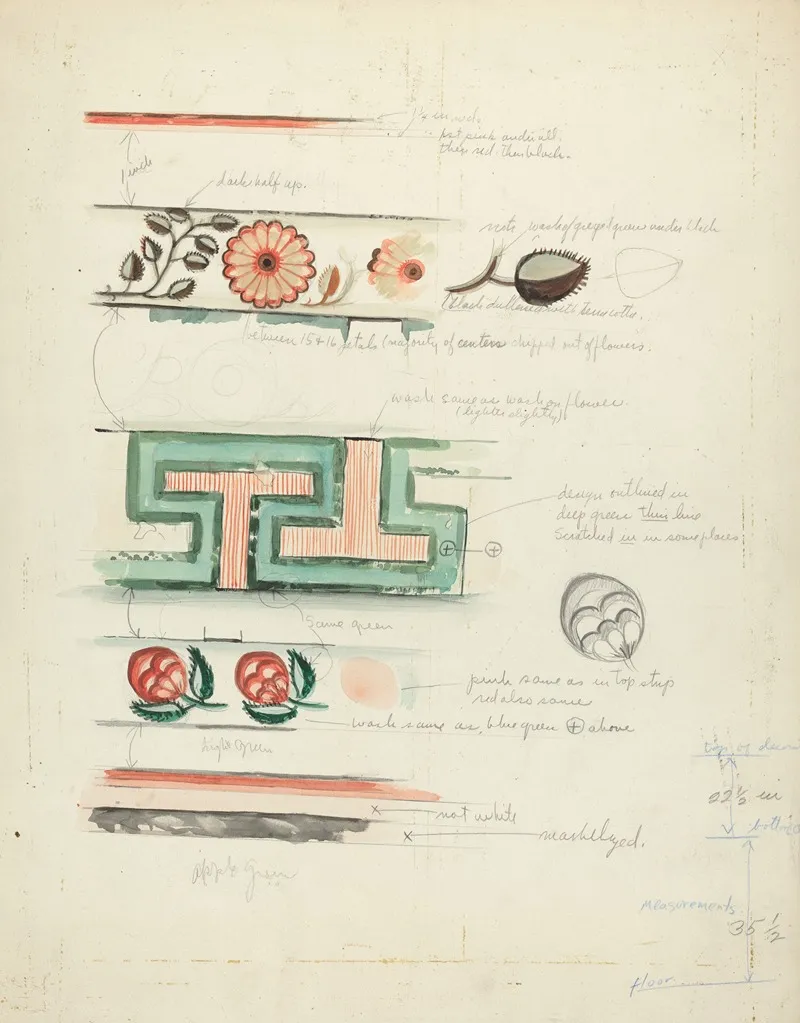 1/2 in red.
1st pink under all,
then red. Then black.
1 inch
dark half up.
note wash of grey/green under black
(Black dull
between 15 & 16 petals (majority of centers chipped out of flowers.
wash same as wash on flower.
(lighter slightly)
design outlined in
deep green thin line
Scratched in in some places
Same green
pink same as in top strip
red also same
wash same as, blue green ⊕ above
light green
top of
22 1/2 in
not white
marbelized.
apple green
Measurements
35 1/2
floor